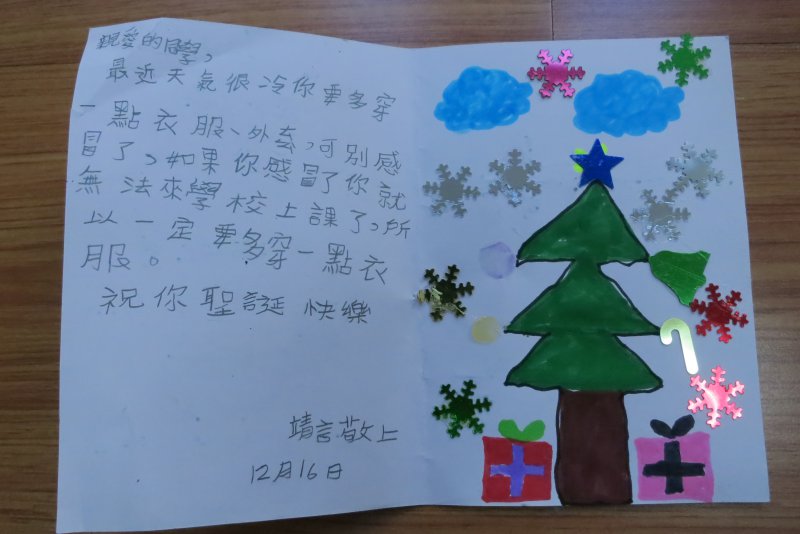 親愛的同學,
最近天氣很冷你要多穿
一點衣服、外套,可別感
冒了,如果你感冒了你就
無法來學校上課了,所
以一定要多穿一點衣
服。
祝你聖誕快樂
靖言敬上
12月16日